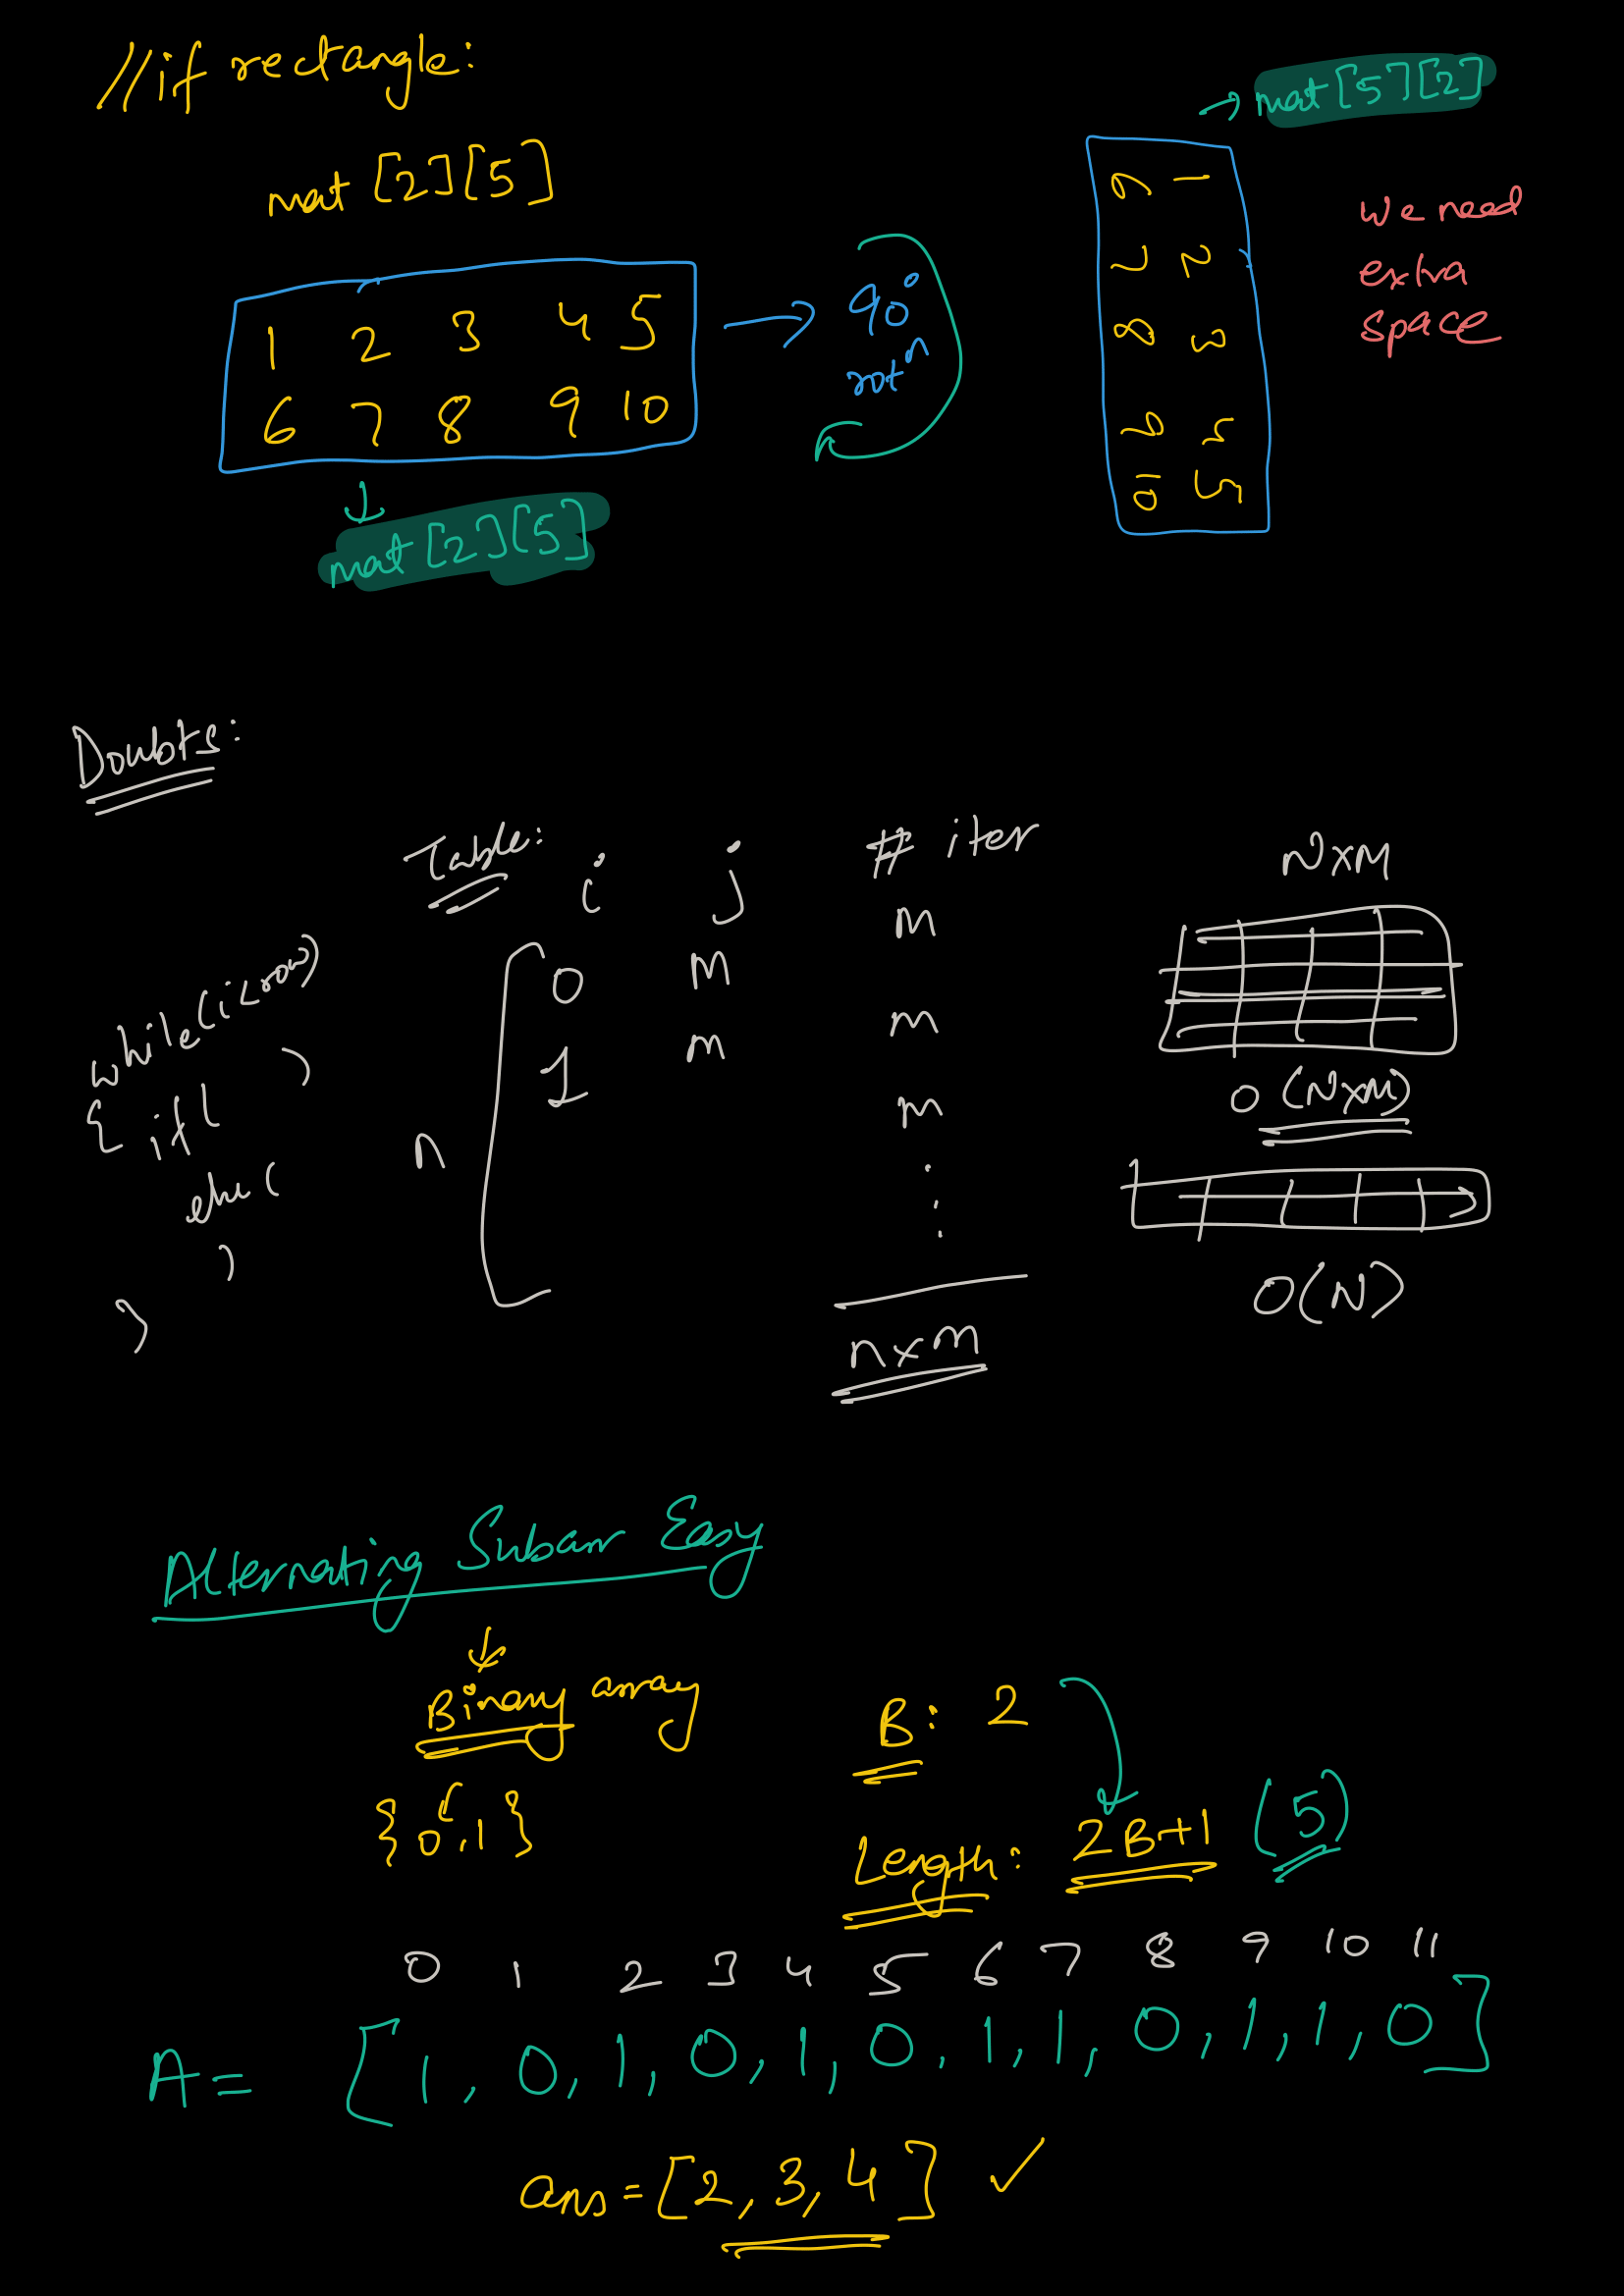 //if rectangle:
mat [2][5]
1 2 3 4 5
6 7 8 9 10
mat [2][5]
→ 90°
rotⁿ
→ mat [5][2]
6 1
7 2
8 3
9 4
10 5
We need
extra
space
Doubts:
while(i<row)
{ if( )
else(
)
}
Table:
i j # iter
m
0 M
m
1 m
m
n
n x m
NxM
O (NxM)
O(N)
Alternating Subarr Easy
Binary array
{0,1}
B: 2
Length: 2B+1 (5)
0 1 2 3 4 5 6 7 8 9 10 11
A = [1, 0, 1, 0, 1, 0, 1, 1, 0, 1, 1, 0]
ans = [2, 3, 4] ✓